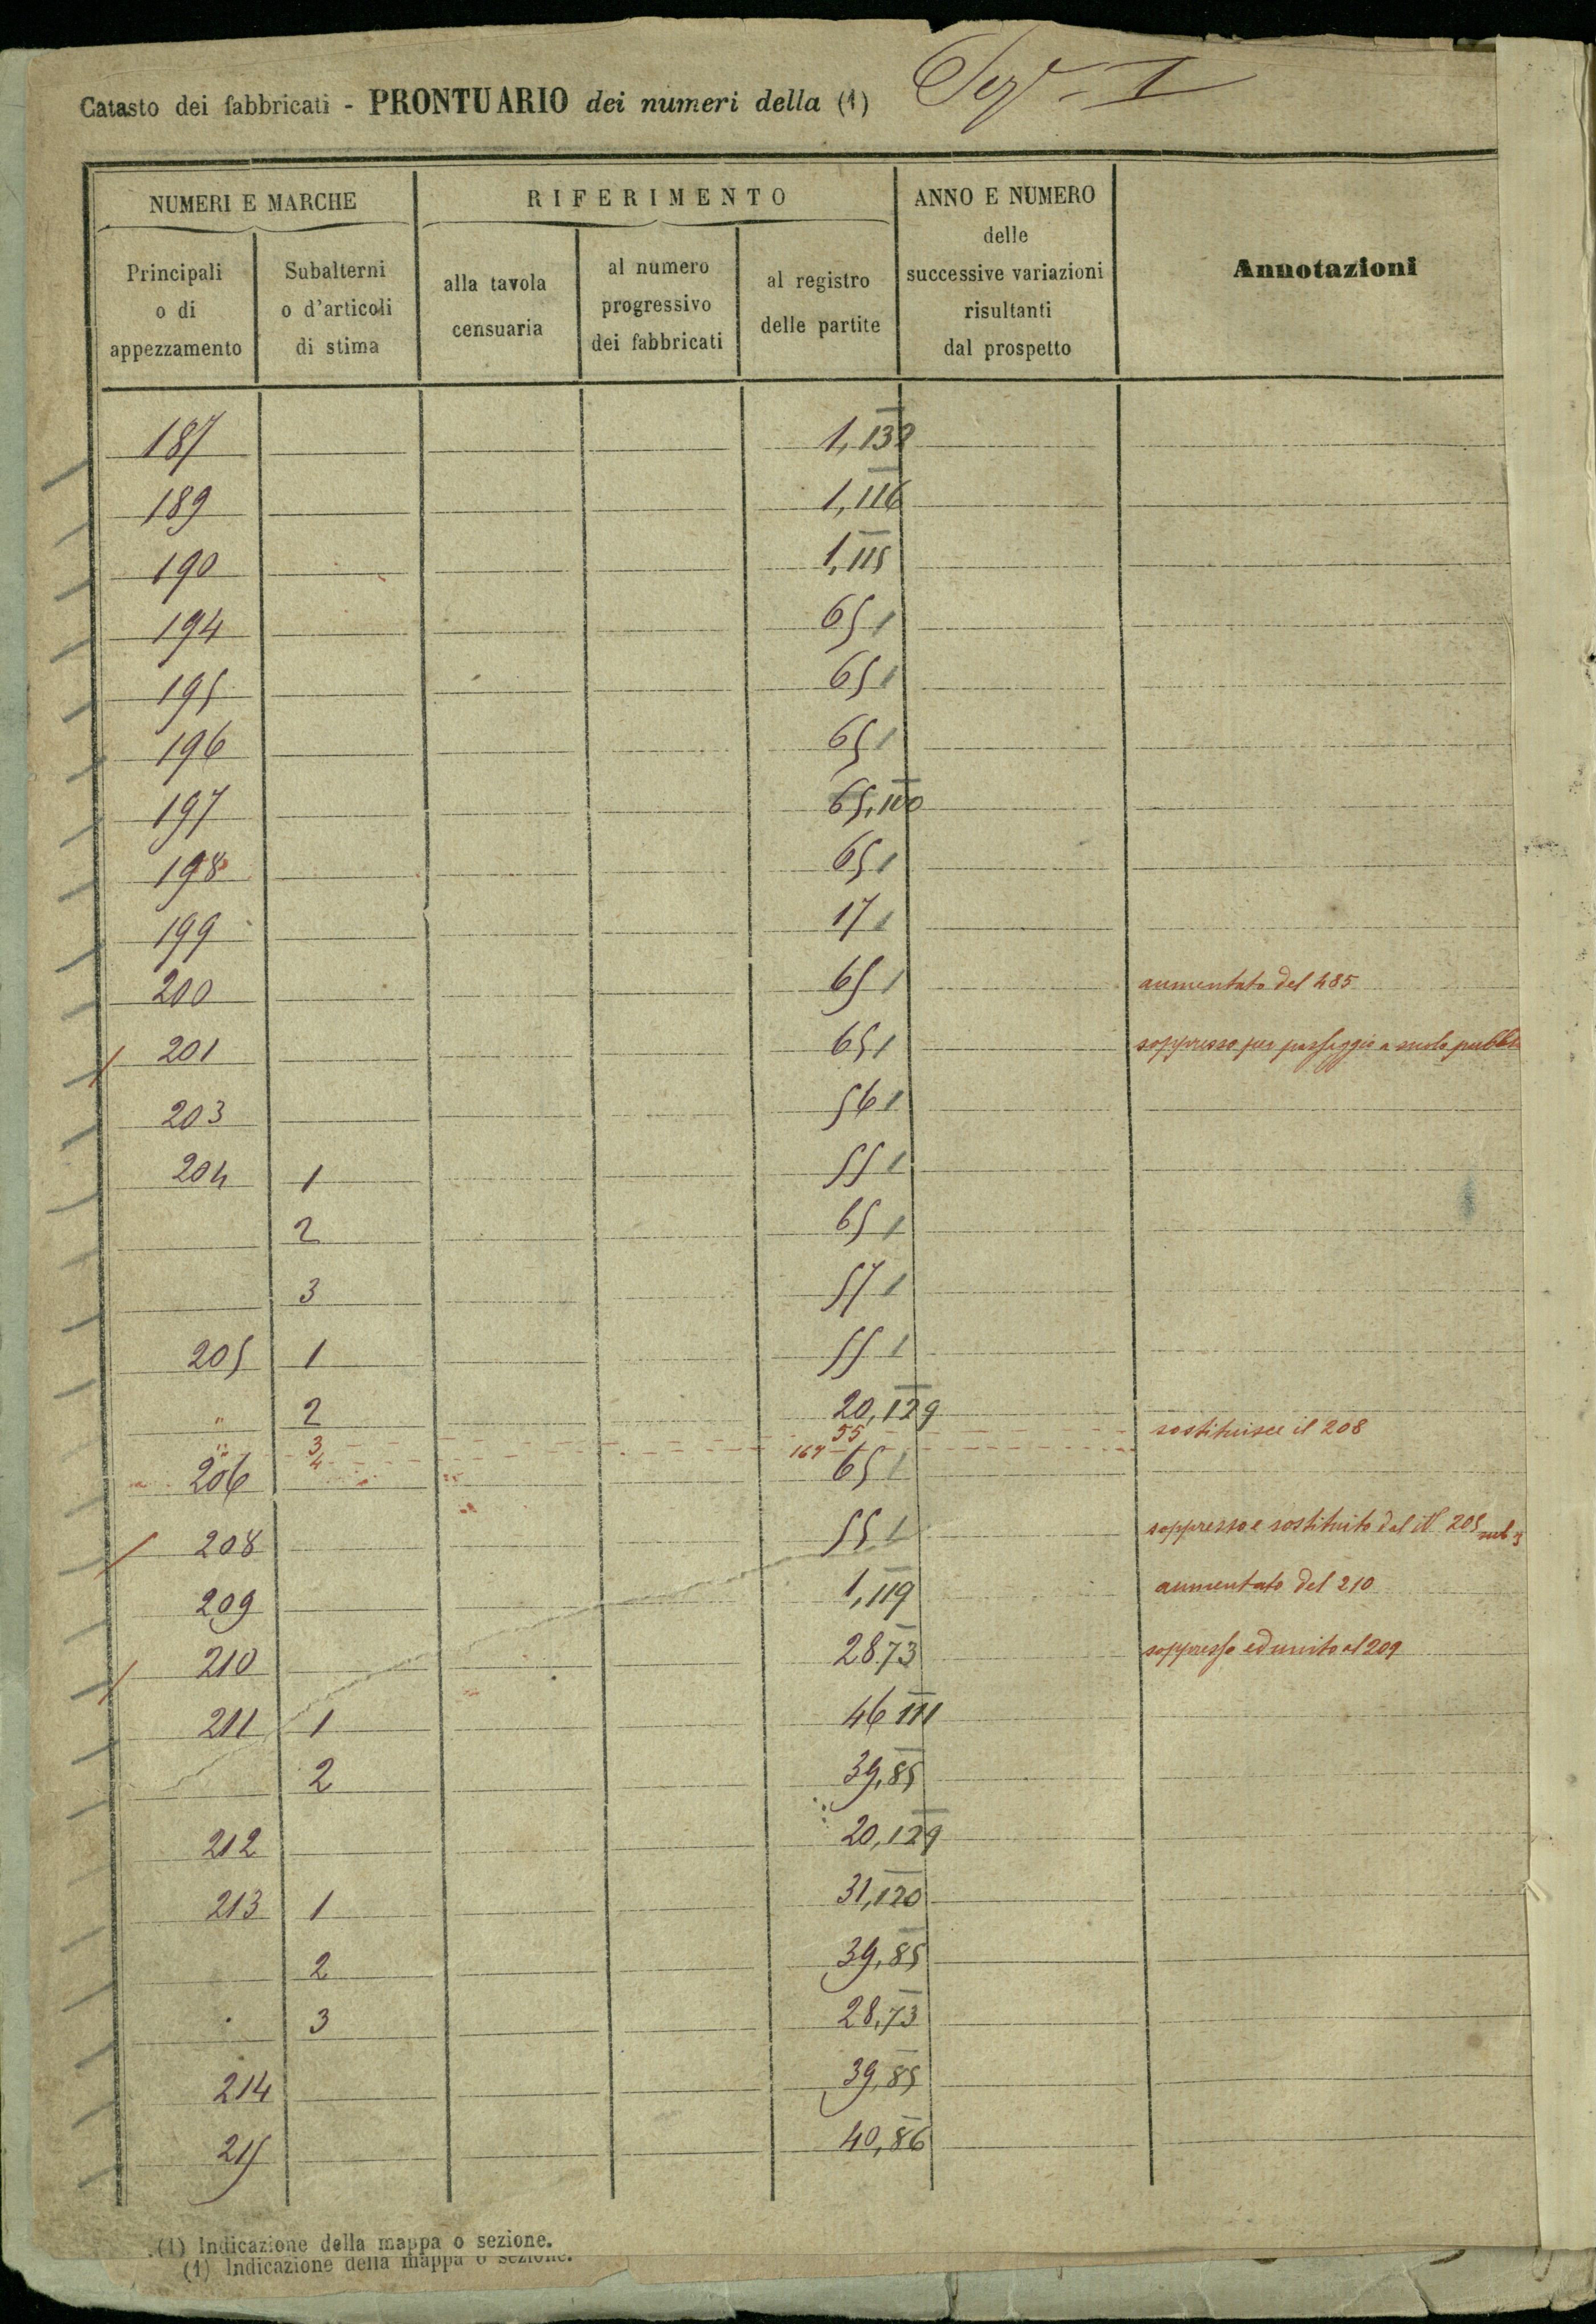 Catasto dei fabbricati - PRONTUARIO dei numeri della (1) Sez.e - I
NUMERI E MARCHE
RIFERIMENTO
ANNO E NUMERO
delle
successive variazioni
risultanti
dal prospetto
Annotazioni
Principali
o di
appezzamento
Subalterni
o d'articoli
di stima
alla tavola
censuaria
al numero
progressivo
dei fabbricati
al registro
delle partite
187 1,132
189 1,116
190 1,115
194 65 1
195 65 1
196 65 1
197 65,110
198 65 1
199 17 1
200 65 1 aumentato del 485
201 65 1 soppresso per passaggio a suolo pubbl
203 56 1
204 1 55 1
2 65 1
3 57 1
205 1 55 1
" 2 20,129
" 3 55 sostituisce il 208
4 167
206 65 1
208 55 1 soppresso e sostituito dal N 205 sub 3
209 1,119 aumentato del 210
210 28.73 soppresso ed unito al 209
211 1 46 111
2 39,85
212 20,129
213 1 31,120
2 39,85
3 28,73
214 39,85
215 40,86
(1) Indicazione della mappa o sezione.
(1) Indicazione della mappa o sezione.